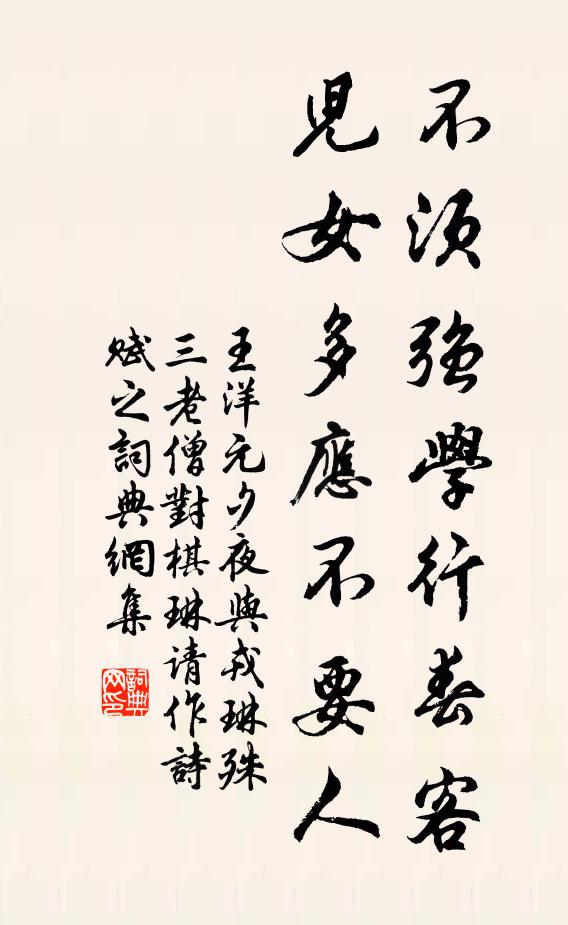 不須強學行春客
兒女多應不要人
王洋元夕夜與戎琳殊
三老僧對棋琳请作詩
賦之詞典網集
詞典网印